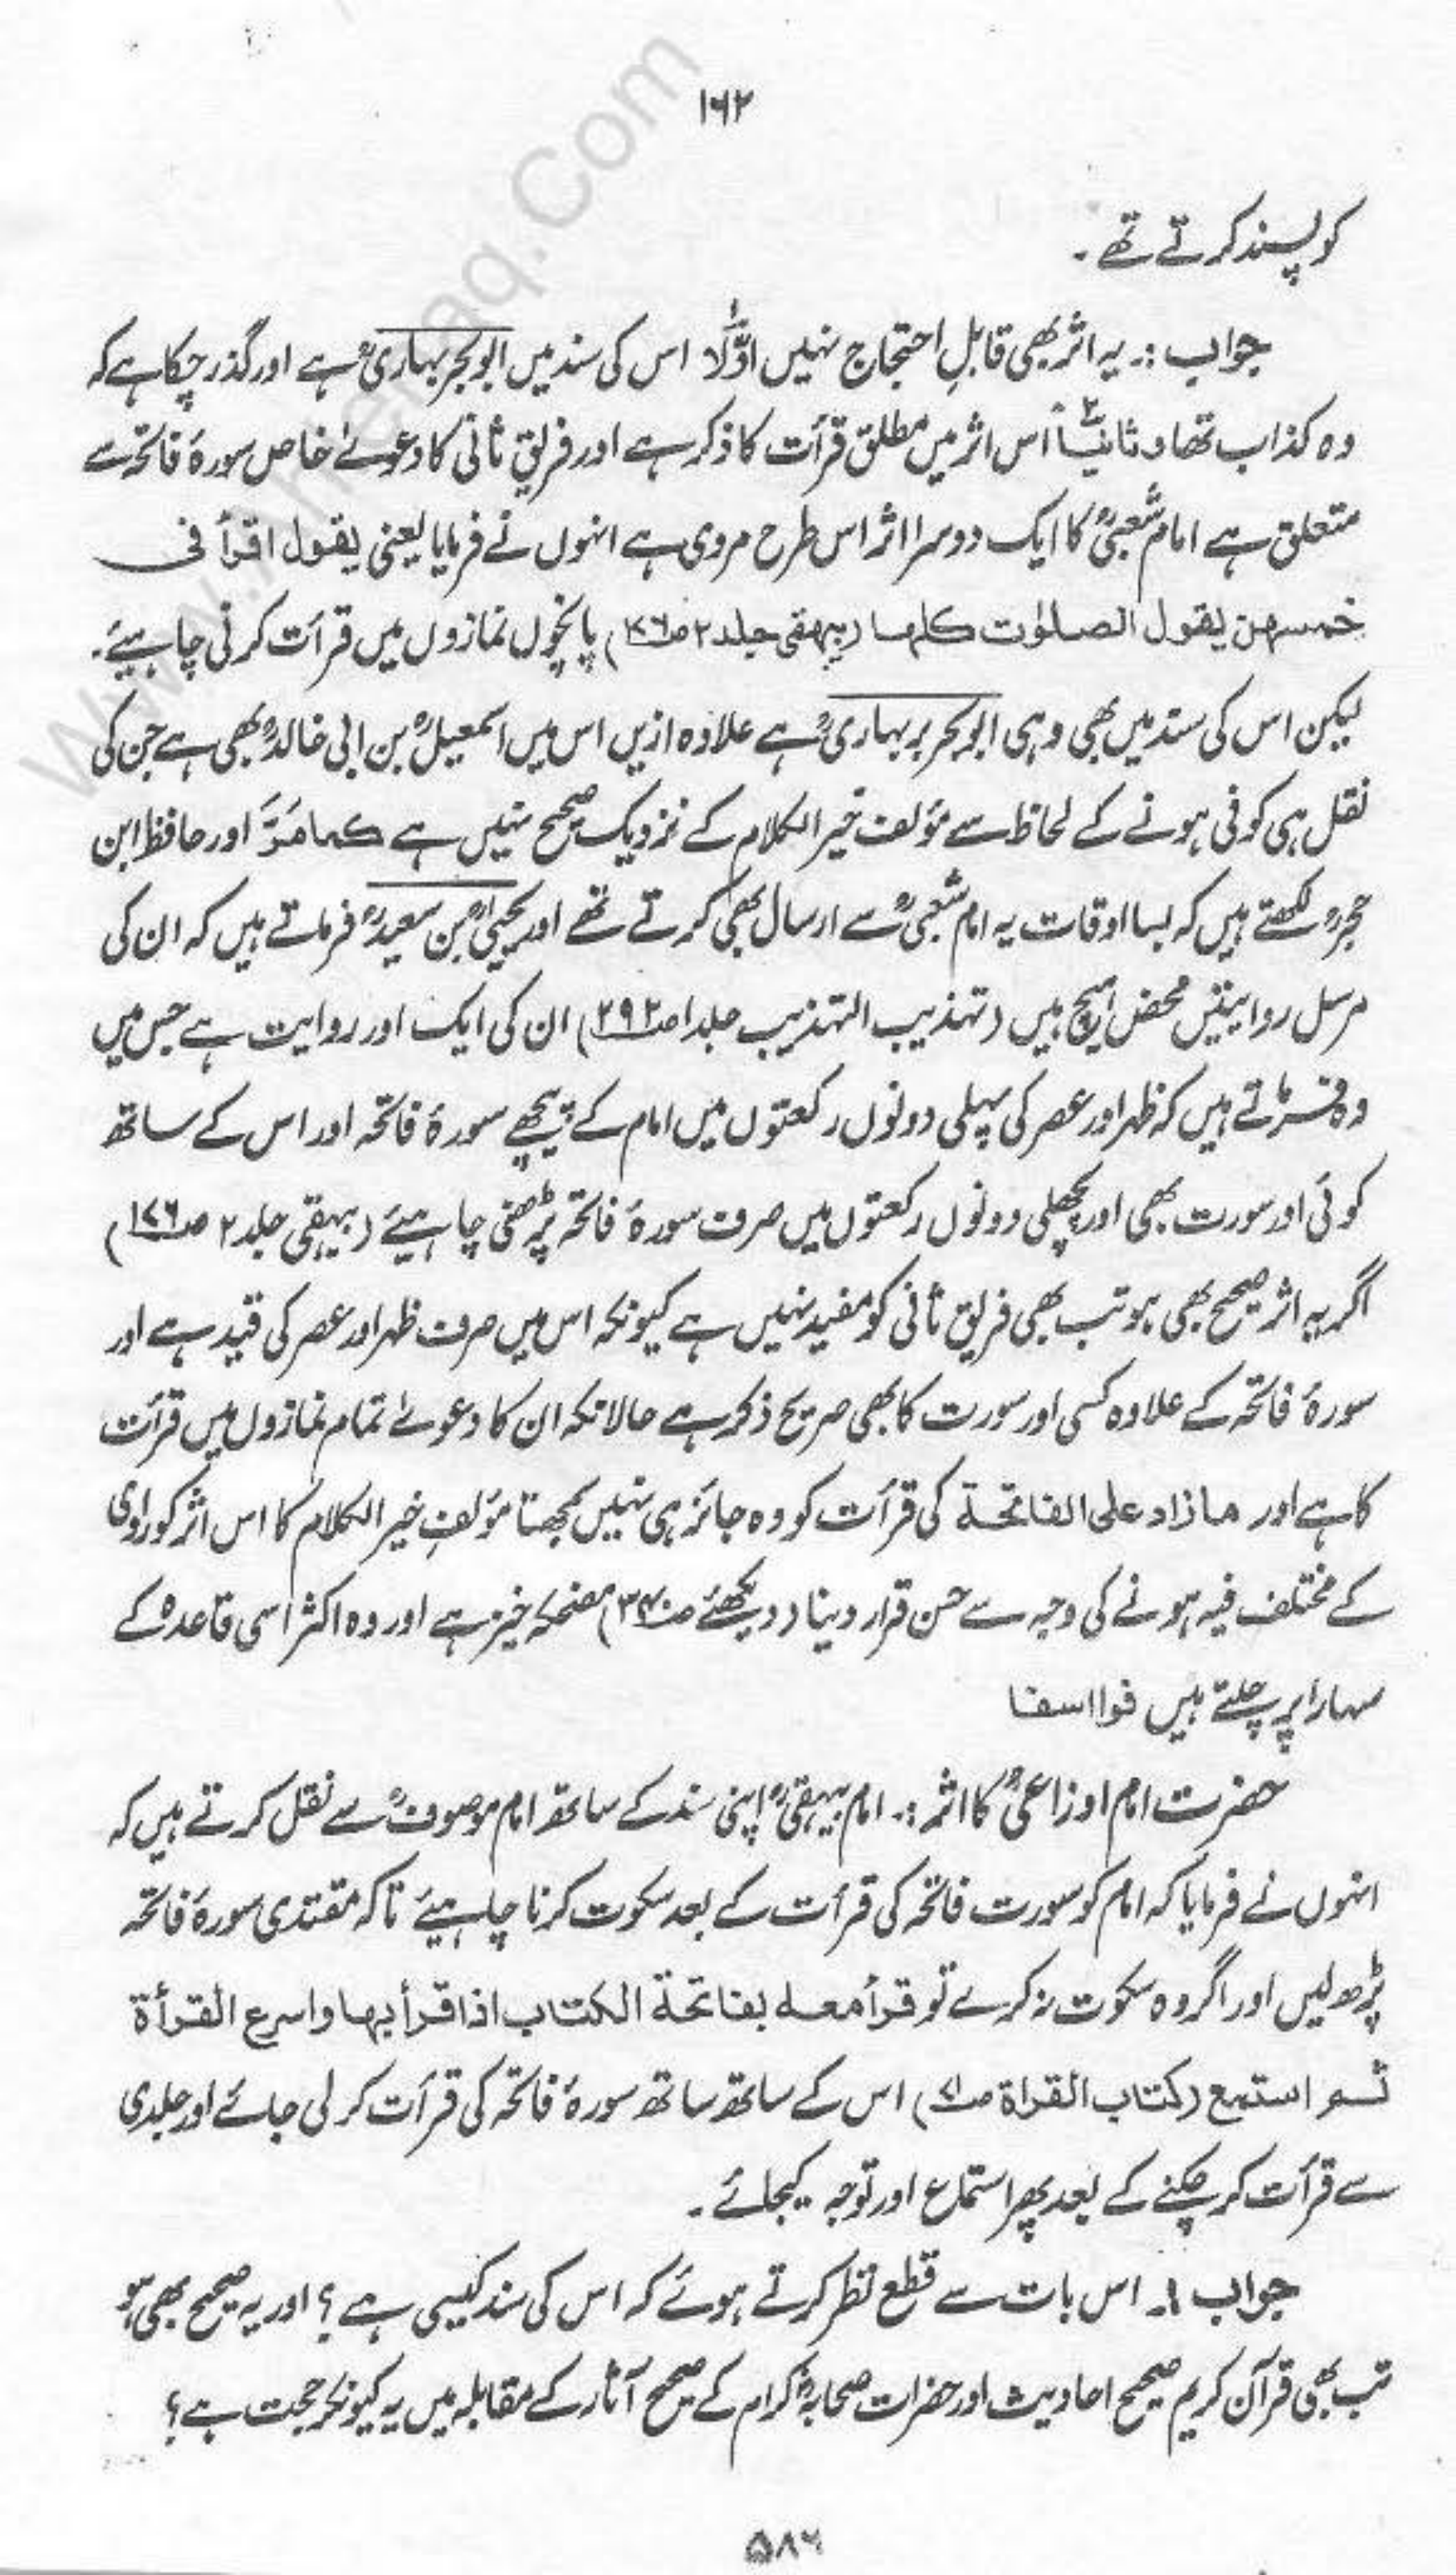 ۱۶۲
کو پسند کرتے تھے ۔
جواب :۔ یہ اثر بھی قابلِ احتجاج نہیں اوّلاً اس کی سند میں ابو بحر بہاریؒ ہے اور گذر چکا ہے کہ
وہ کذاب تھا و ثانیاً اس اثر میں مطلق قرأت کا ذکر ہے اور فریق ثانی کا دعوےٰ خاص سورۂ فاتحہ سے
متعلق ہے امام شعبیؒ کا ایک دوسرا اثر اس طرح مروی ہے انہوں نے فرمایا یعنی یقول اقرأ فی
خمسهن یقول الصلوٰت کلها (بیہقی جلد ۲ ص۱۷۶) پانچوں نمازوں میں قرأت کرنی چاہیئے۔
لیکن اس کی سند میں بھی وہی ابو بحر بربہاریؒ ہے علاوہ ازیں اس میں اسمعیلؒ بن ابی خالدؒ بھی ہے جن کی
نقل ہی کوفی ہونے کے لحاظ سے مؤلف خیر الکلام کے نزدیک صحیح نہیں ہے کما مَرَّ اور حافظ ابن
حجرؒ لکھتے ہیں کہ بسا اوقات یہ امام شعبیؒ سے ارسال بھی کرتے تھے اور یحییٰؒ بن سعیدؒ فرماتے ہیں کہ ان کی
مرسل روایتیں محض ہیچ ہیں (تہذیب التہذیب جلد۱ ص۲۹۲) ان کی ایک اور روایت ہے جس میں
وہ فرماتے ہیں کہ ظہر اور عصر کی پہلی دونوں رکعتوں میں امام کے پیچھے سورۂ فاتحہ اور اس کے ساتھ
کوئی اور سورت بھی اور پچھلی دونوں رکعتوں میں صرف سورۂ فاتحہ پڑھنی چاہیئے (بیہقی جلد ۲ ص۱۷۶)
اگر یہ اثر صحیح بھی ہو تب بھی فریق ثانی کو مفید نہیں ہے کیونکہ اس میں صرف ظہر اور عصر کی قید ہے اور
سورۂ فاتحہ کے علاوہ کسی اور سورت کا بھی صریح ذکر ہے حالانکہ ان کا دعوےٰ تمام نمازوں میں قرأت
کا ہے اور مازاد علی الفاتحة کی قرأت کو وہ جائز ہی نہیں سمجھتا مؤلفِ خیر الکلام کا اس اثر کو راوی
کے مختلف فیہ ہونے کی وجہ سے حسن قرار دینا (دیکھئے ص۳۴۰) مضحکہ خیز ہے اور وہ اکثر اسی قاعدہ کے
سہارا پر چلتے ہیں فوا اسفا
حضرت امام اوزاعیؒ کا اثر :۔ امام بیہقیؒ اپنی سند کے ساتھ امام موصوفؒ سے نقل کرتے ہیں کہ
انہوں نے فرمایا کہ امام کو سورت فاتحہ کی قرأت کے بعد سکوت کرنا چاہیئے تاکہ مقتدی سورۂ فاتحہ
پڑھ لیں اور اگر وہ سکوت نہ کرے تو قرأ معه بفاتحة الکتاب اذا قرأ بها و اسرع القرأة
ثم استمع (کتاب القراة ص۷۱) اس کے ساتھ ساتھ سورۂ فاتحہ کی قرأت کر لی جائے اور جلدی
سے قرأت کر چکنے کے بعد پھر استماع اور توجہ کیجائے ۔
جواب ۱۔ اس بات سے قطع نظر کرتے ہوئے کہ اس کی سند کیسی ہے ؟ اور یہ صحیح بھی ہو
تب بھی قرآن کریم صحیح احادیث اور حضرات صحابہؓ کرام کے صحیح آثار کے مقابلہ میں یہ کیونکر حجت ہے ؟
۵۸۶